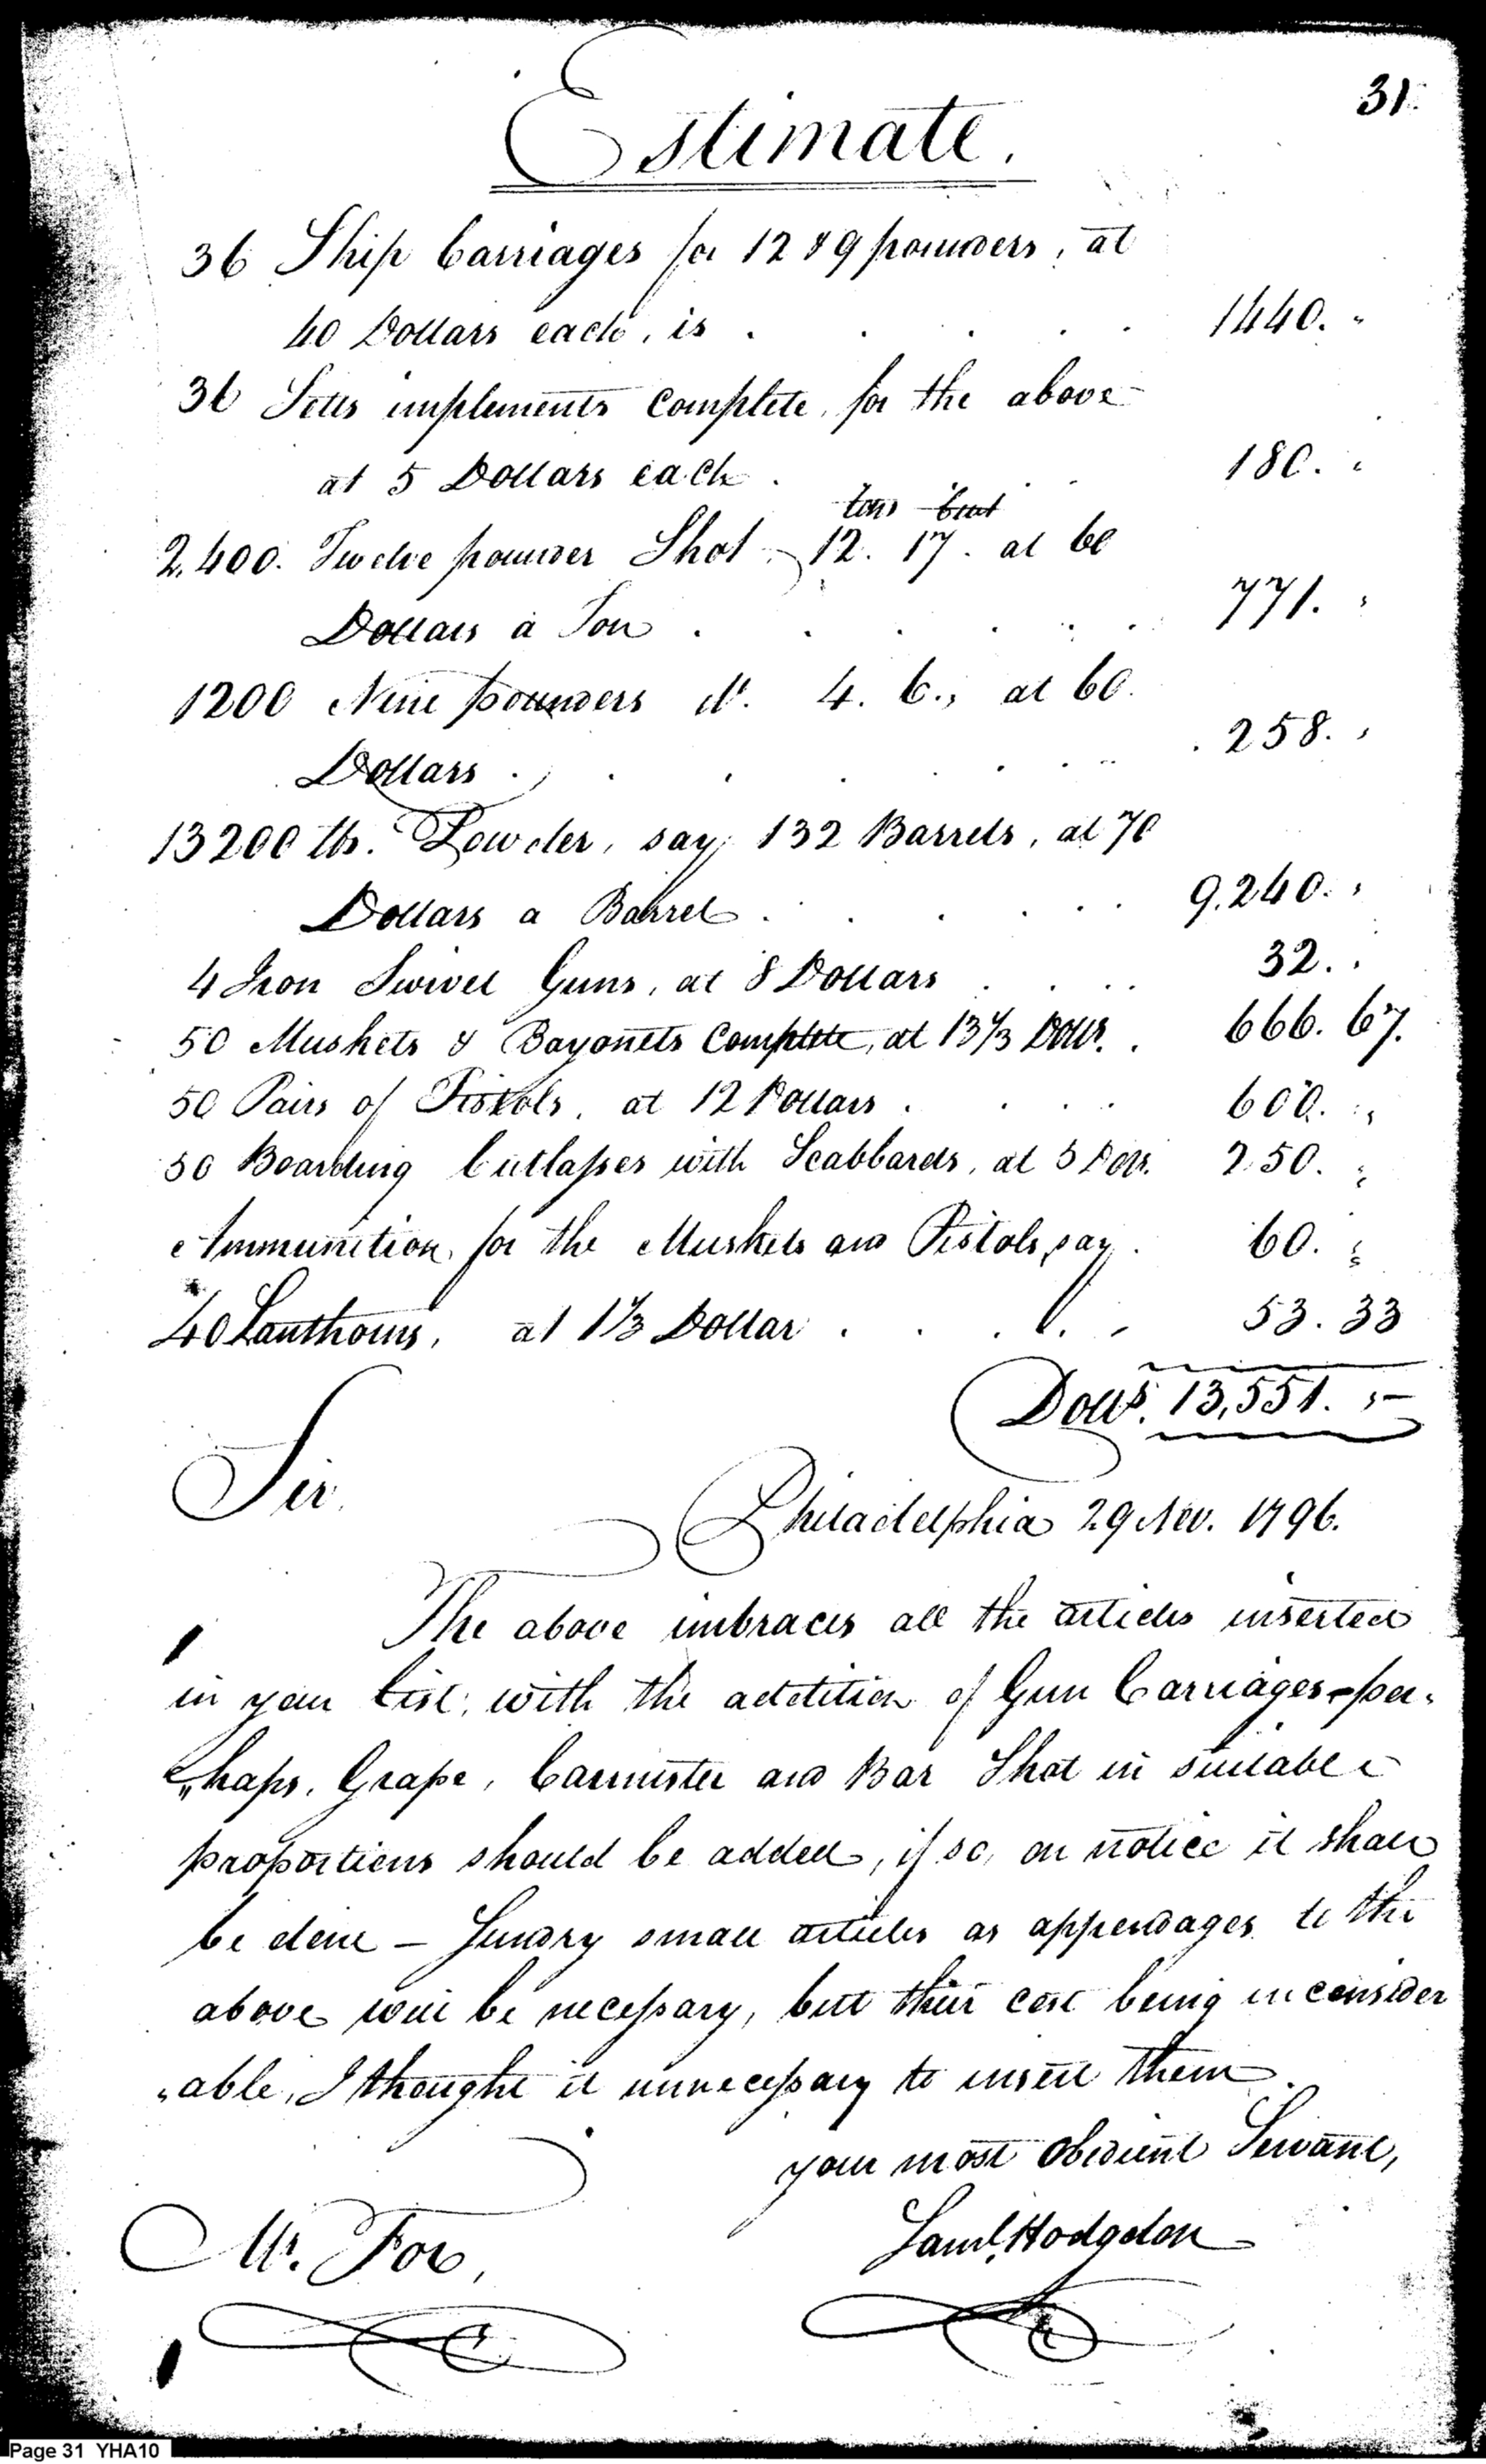 31.
Estimate.
36 Ship Carriages for 12 & 9 pounders, at
40 Dollars each, is . . . . . 1440. "
36 Setts implements complete, for the above
at 5 Dollars each . . . 180. "
tons Cwt
2,400. Twelve pounder Shot 12. 17. at 60
Dollars a Ton . . . . . . 771. "
1200 Nine pounders do. 4. 6., at 60.
Dollars . . . . . . . 258. "
13200 lbs. Powder, say 132 Barrels, at 70
Dollars a Barrel . . . . . . 9,240. "
4 Iron Swivel Guns, at 8 Dollars . . . . 32. "
50 Muskets & Bayonets Complete, at 13 1/3 Dolls. . 666. 67.
50 Pairs of Pistols, at 12 Dollars . . . . 600. "
50 Boarding Cutlasses with Scabbards, at 5 Dolls. 250. "
Ammunition for the Muskets and Pistols, say . 60. "
40 Lanthorns, at 1 1/3 Dollar . . . . . 53. 33
Dolls. 13,551. "
Sir.
Philadelphia 29 Nov. 1796.
The above imbraces all the articles inserted
in your list, with the addition of Gun Carriages - per-
"haps, Grape, Cannister and Bar Shot in suitable
proportions should be added, if so, on notice it shall
be done - Sundry small articles as appendages to the
above will be necessary, but their cost being inconsider
"able, I thought it unnecessary to insert them.
your most obedient Servant,
Saml. Hodgdon
Mr. Fox,
Page 31 YHA10